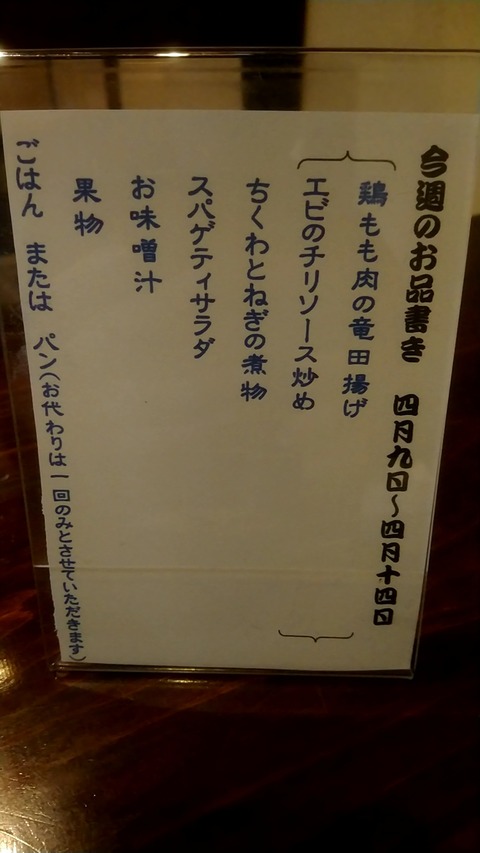 今週のお品書き 四月九日～四月十四日
鶏もも肉の竜田揚げ
エビのチリソース炒め
ちくわとねぎの煮物
スパゲティサラダ
お味噌汁
果物
ごはん または パン(お代わりは一回のみとさせていただきます)